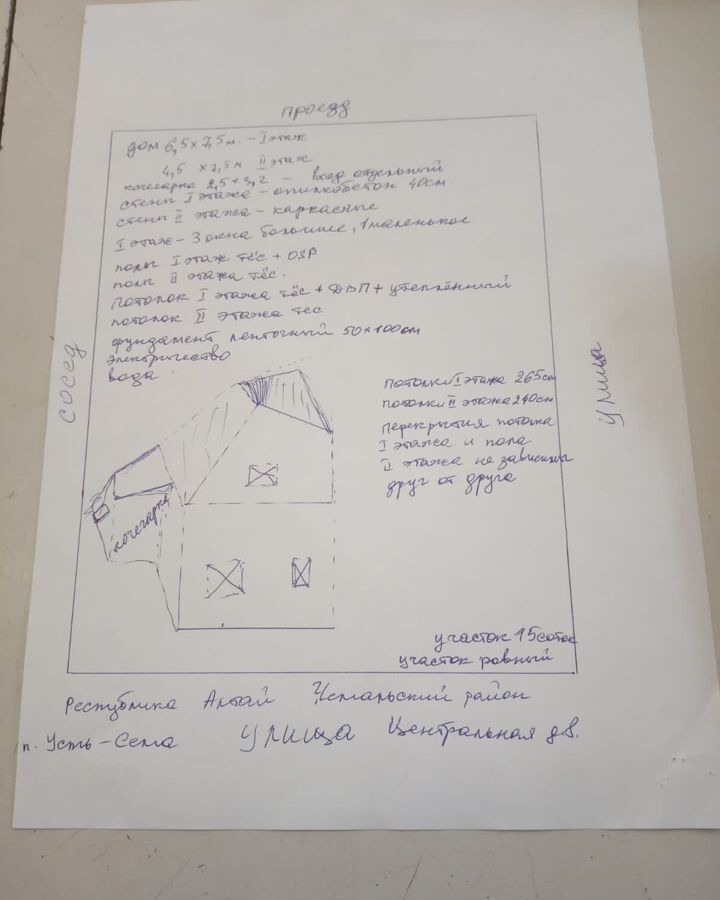 проезд
дом 6,5 x 7,5 м. - I этаж
4,5 x 7,5 м II этаж
кочегарка 2,5 x 3,2 - вход отдельный
стены I этажа - опилкобетон 40см.
стены II этажа - каркасные
I этаж - 3 окна большие, 1 маленькое
полы I этаж тёс + OSP
полы II этажа тёс.
потолок I этажа тёс + ДВП + утеплённый
потолок II этажа тес
фундамент ленточный 50 x 100см
электричество
вода
сосед
улица
потолки I этажа 265см
потолки II этажа 240см
перекрытия потолка
I этажа и пола
II этажа не зависимы
друг от друга
кочегарка
участок 15 соток
участок ровный
Республика Алтай Чемальский район
п. Усть-Сема улица Центральная д.8.